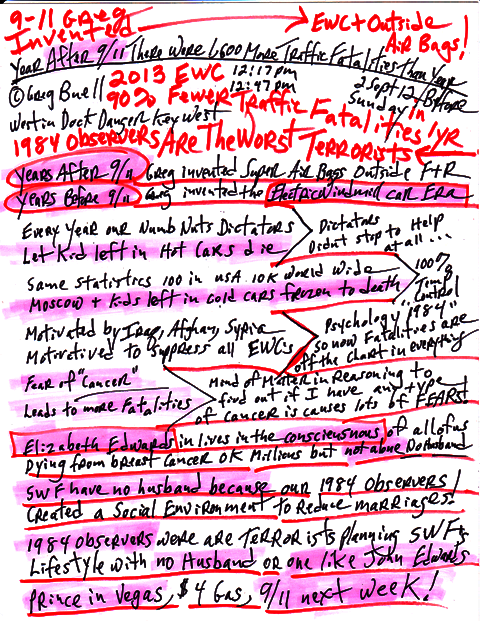 9-11 Greg
Invented
EWC + Outside
Air Bags!
Year After 9/11 There Were 1,600 More Traffic Fatalities than Year
Before
© Greg Buell
2013 EWC
12:17 pm
12:47 pm
2 Sept 12
Sunday
90% Fewer Traffic Fatalities In
1yr
Westin Dock Danger Key West
1984 Observers Are The Worst Terrorists
Years After 9/11 Greg invented Super Air Bags Outside F+R
Years Before 9/11 Greg invented the Electricwindmill car Era
Every Year our Numb Nuts Dictators
Let Kid left in Hot Cars die
Dictators
Didn't stop to Help
at all...
Same Statistics 100 in USA 10K World Wide
Moscow + Kids left in cold cars frozen to death
100%
Temp
Control
Motivated by Iraq, Afghan, Syria
Motivated to suppress all EWC's
Psychology "1984"
so now Fatalities are
off the chart in everything
Fear of "Cancer"
Leads to more Fatalities
Mend of Mater in Reasoning to
find out if I have any type
of cancer is causes lots of FEARS!
Elizabeth Edwards in lives in the consciousnous of all of us
Dying from breast cancer OK Millions but not abuse Do Husband
SWF have no husband because our 1984 Observers
Created a Social Environment to Reduce marriages!
1984 Observers were are TERRORists planning SWF's
Lifestyle with no Husband or one like John Edwards
Prince in Vegas, $4 Gas, 9/11 next week!